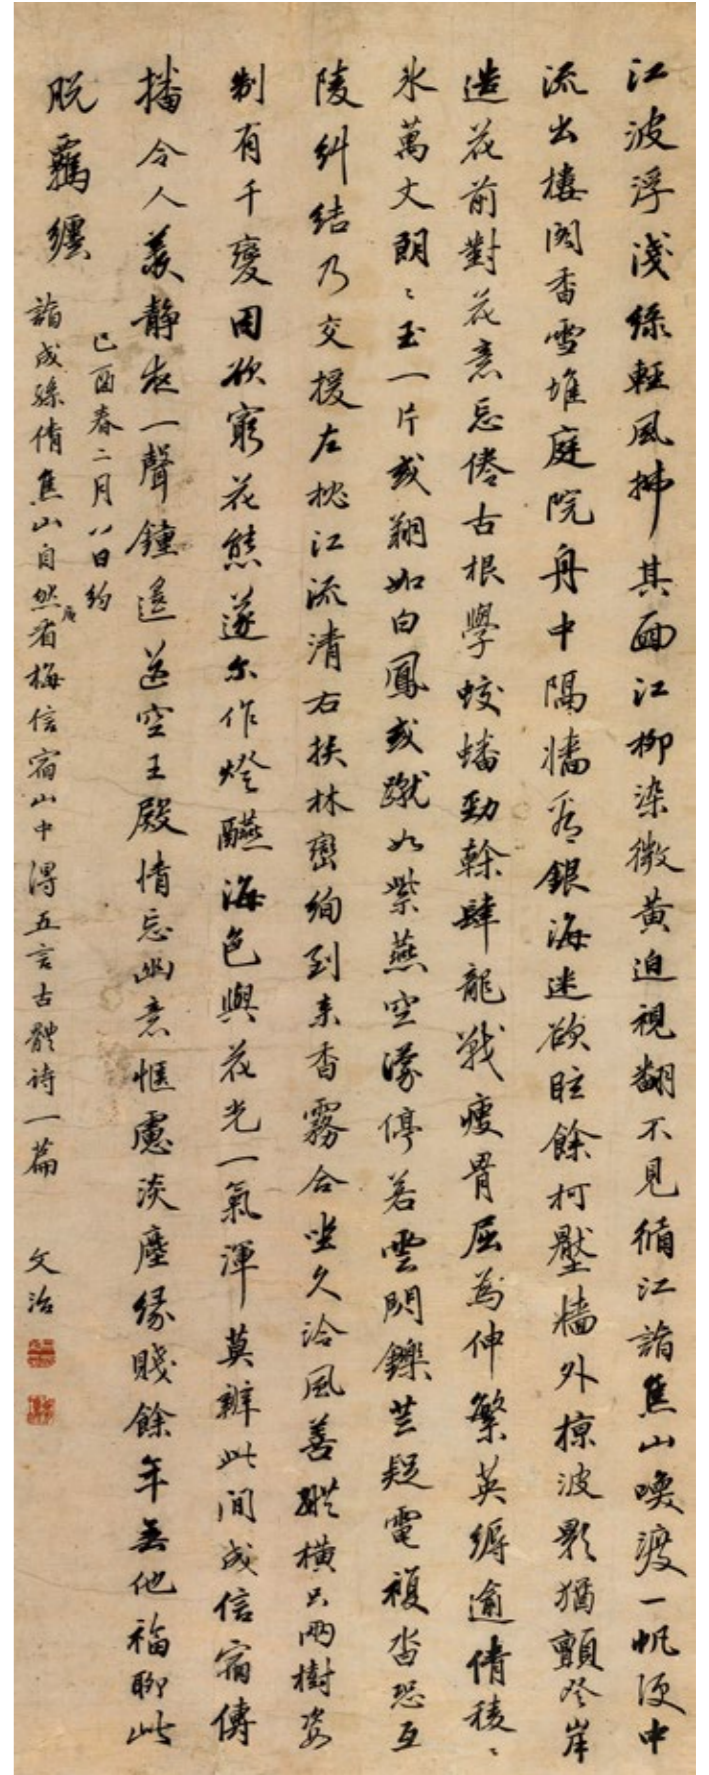 江波浮淺綠輕風拂其面江柳染微黃迫視翻不見循江詣焦山喚渡一帆便中
流出樓閣香雪堆庭院舟中隔牆看銀海迷欲眩餘柯壓牆外掠波影猶顫登岸
造花前對花意忘倦古根學蛟蟠勁幹肆龍戰瘦骨屈為伸繁英縟逾倩稜〻
氷萬丈朗〻玉一片或翔如白鳳或蹴如紫燕空濛停若雲閃鑠苎疑電複沓恐互
陵糾結乃交援左枕江流清右挾林巒絢到來香霧合坐久泠風善縱橫只兩樹姿
制有千變因欲窮花態遂爾作燈讌海色與花光一氣渾莫辨此間成信宿傳
播令人羨靜夜一聲鐘遙送空王殿情忘幽意愜慮淡塵緣賤餘年無他福聊此
脫羈纏
己酉春二月八日約
詣成孫倩焦山自然庵看梅信宿山中得五言古體詩一篇 文治